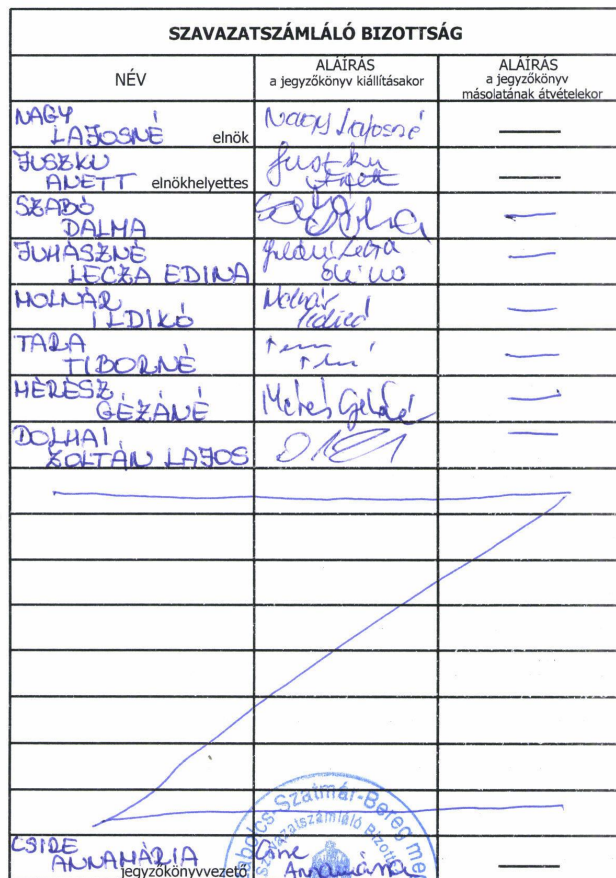 SZAVAZATSZÁMLÁLÓ BIZOTTSÁG
NÉV
ALÁÍRÁS
a jegyzőkönyv kiállításakor
ALÁÍRÁS
a jegyzőkönyv
másolatának átvételekor
NAGY
LAJOSNÉ elnök
Nagy Lajosné
JUSZKU
ANETT elnökhelyettes
Juszku
Anett
SZABÓ
DALMA
JUHÁSZNÉ
LECZA EDINA
MOLNÁR
ILDIKÓ
Molnár
Ildikó
TARA
TIBORNÉ
MÉRÉSZ
GÉZÁNÉ
DOLHAI
ZOLTÁN LAJOS
CSIRE
ANNAMÁRIA
jegyzőkönyvvezető
Csire
Annamária
Szatmár-Bereg
Szavazatszámláló